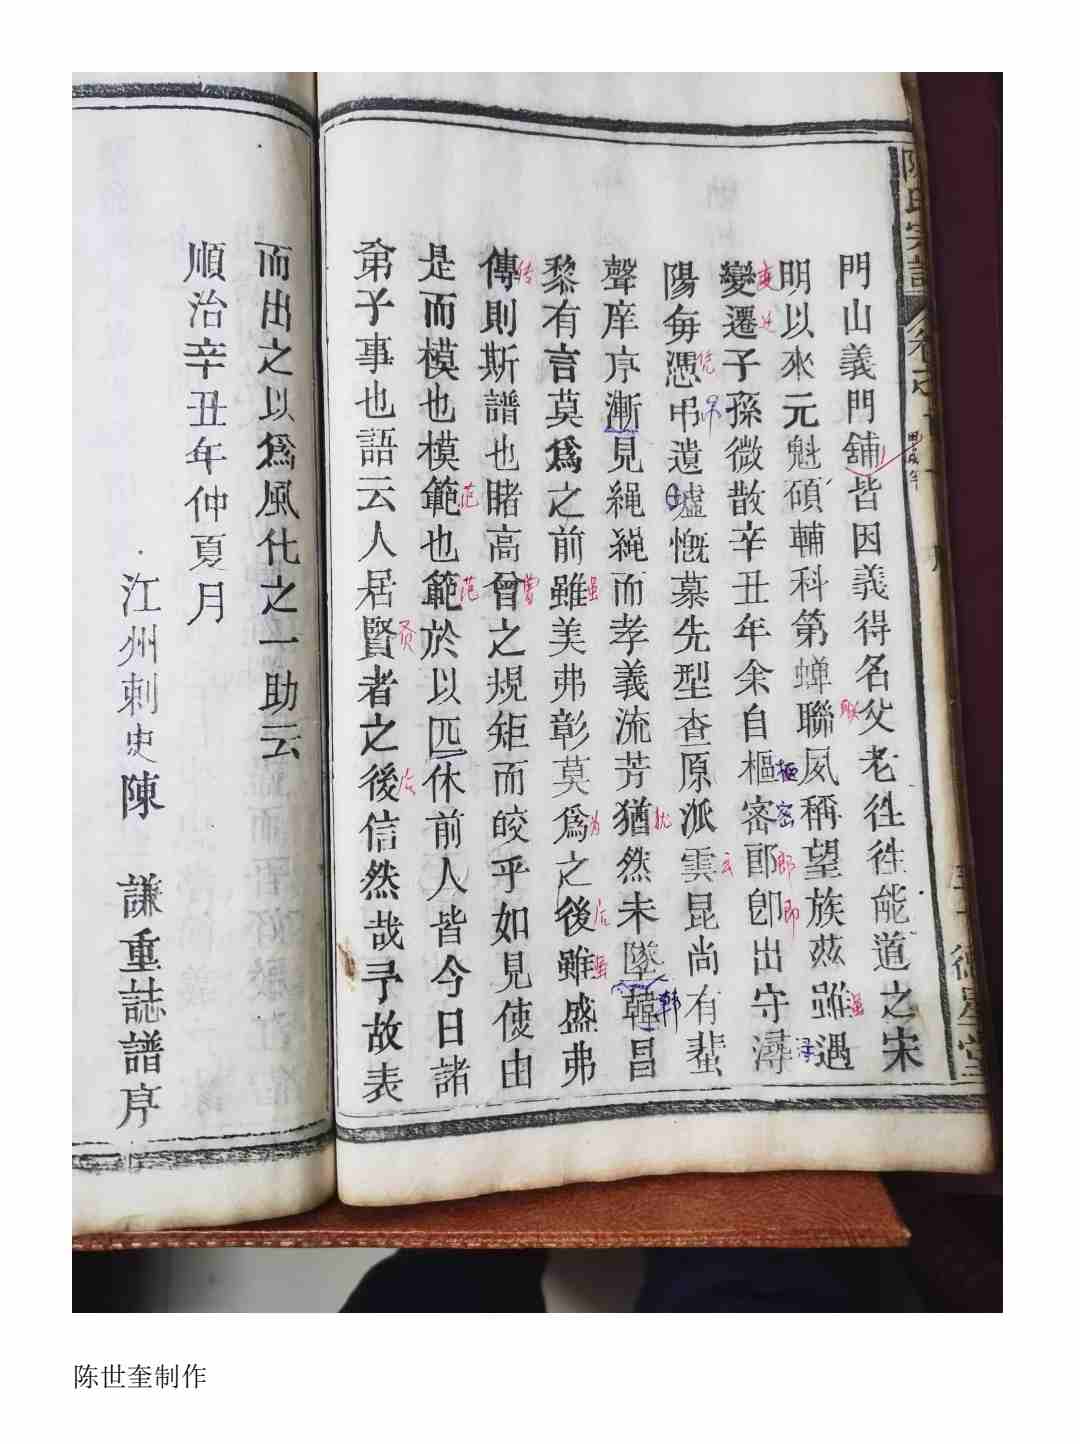 門山義門舖皆因義得名父老徃徃能道之宋
明以來元魁碩輔科第蟬聯夙稱望族茲雖遇
變遷子孫微散辛丑年余自樞密郎卽出守潯
陽每憑弔遺墟慨慕先型查原派雲昆尚有蜚
聲庠序漸見繩繩而孝義流芳猶然未墜韓昌
黎有言莫爲之前雖美弗彰莫爲之後雖盛弗
傳則斯譜也睹高曾之規矩而皎乎如見使由
是而模也模範也範於以匹休前人皆今日諸
弟子事也語云人居賢者之後信然哉予故表
而出之以爲風化之一助云
順治辛丑年仲夏月
江州刺史陳 謙重誌譜序
陳氏宗譜
德星堂
变
迁
凭
吊
传
范
范
曾
虽
贤
联
枢
密
郎
即
为
犹
云
后
后
虽
虽
韩
浔
陈世奎制作